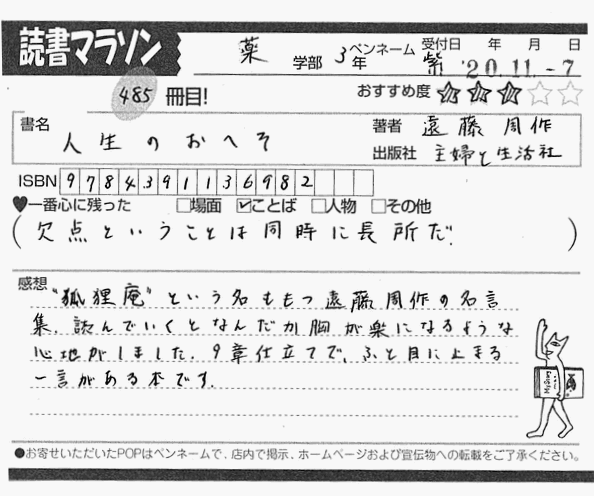 読書マラソン
薬 学部 3年 ペンネーム 紫 受付日 年 月 日 '20.11.-7
485 冊目! おすすめ度 ★★★☆☆
書名 人生のおへそ 著者 遠藤周作
出版社 主婦と生活社
ISBN 9784391136982
♥一番心に残った □場面 ☑ことば □人物 □その他
(欠点ということは同時に長所だ.)
感想 "狐狸庵"という名ももつ遠藤周作の名言
集.読んでいくとなんだか胸が楽になるような
心地がしました.9章仕立てで、ふと目に止まる
一言がある本です.
●お寄せいただいたPOPはペンネームで、店内で掲示、ホームページおよび宣伝物への転載をご了承ください。